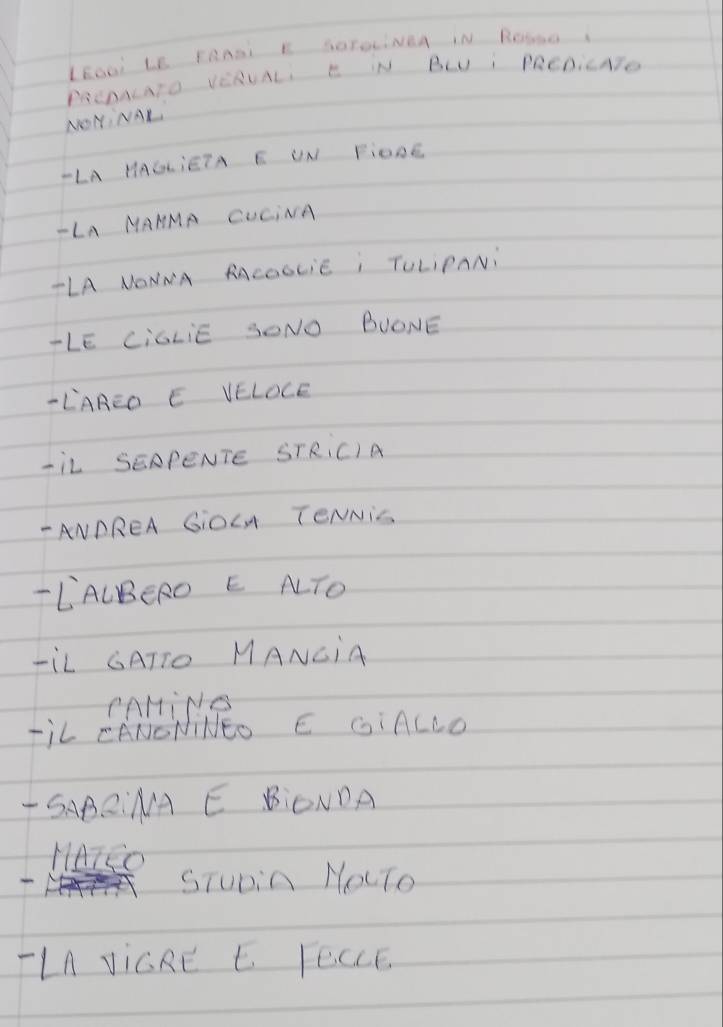 LEGGi LE FRASi E SOTOLiNEA IN ROSSO i
PREDACATO VERUALi E iN BLU i PREDiCATO
NOMiNAL
-LA MAGLiETA E UN FiORE
-LA MAMMA CUCiNA
-LA NONNA RACOGLiE i TULiPANi
-LE CiGLiE SONO BUONE
-L'AREO E VELOCE
-iL SERPENTE STRiCiA
-ANDREA GiOCA TENNiS
-L'ALBERO E ALTO
-iL GATTO MANGiA
CAMiNO
-iL E GiALLO
-SABRiNA E BiONDA
MATEO
- STUDiA MOLTO
-LA TiGRE E